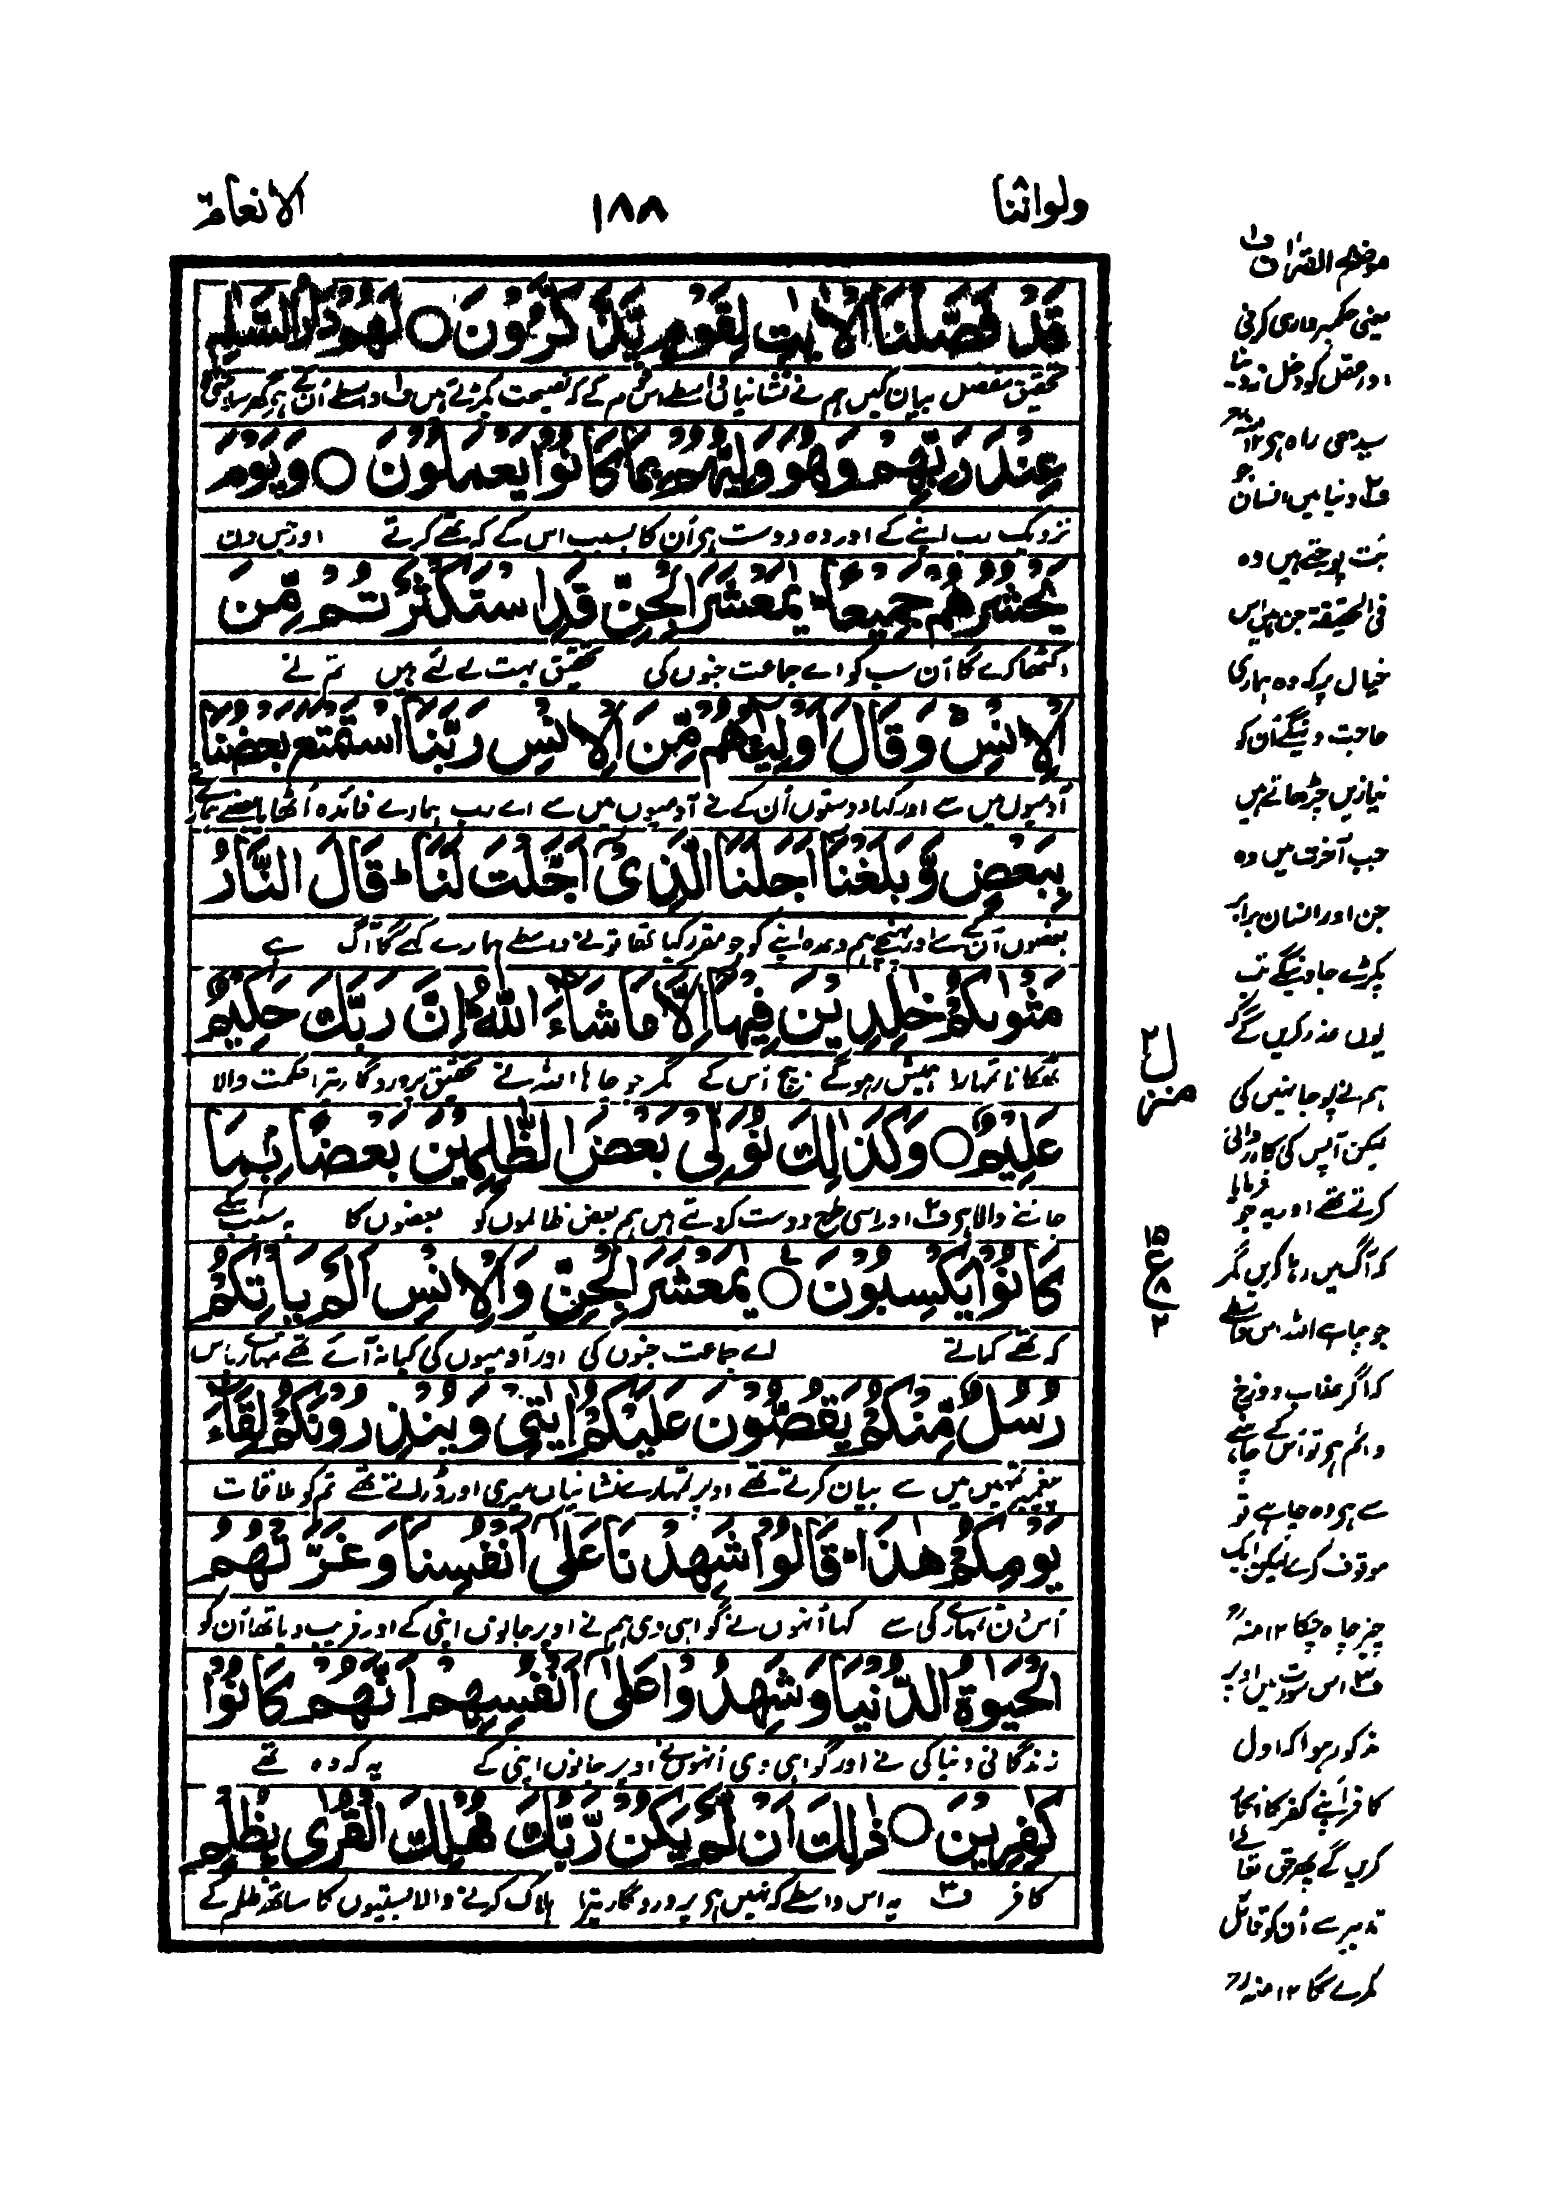 ولواننا
١٨٨
الانعام ٦
قَدْ فَصَّلْنَا الْاٰیٰتِ لِقَوْمٍ یَّذَّكَّرُوْنَ ○ لَهُمْ دَارُ السَّلٰمِ
تحقیق مفصل بیان کیں ہم نے نشانیاں واسطے اس قوم کے کہ نصیحت پکڑتے ہیں ف واسطے اُن کے ہے گھر سلامتی کا
عِنْدَ رَبِّهِمْ وَهُوَ وَلِیُّهُمْ بِمَا كَانُوْا یَعْمَلُوْنَ ○ وَیَوْمَ
نزدیک رب اپنے کے اور وہ دوست ہے اُن کا بسبب اس کے کہ تھے کرتے اور جس دن
یَحْشُرُهُمْ جَمِیْعًا یٰمَعْشَرَ الْجِنِّ قَدِ اسْتَكْثَرْتُمْ مِّنَ
اکٹھا کرے گا اُن سب کو اے جماعت جنوں کی تحقیق بہت لے لئے ہیں تم نے
الْاِنْسِ وَقَالَ اَوْلِیٰٓـُٔهُمْ مِّنَ الْاِنْسِ رَبَّنَا اسْتَمْتَعَ بَعْضُنَا
آدمیوں میں سے اور کہا دوستوں اُن کے نے آدمیوں میں سے اے رب ہمارے فائدہ اُٹھایا بعضے ہمارے نے
بِبَعْضٍ وَّبَلَغْنَاۤ اَجَلَنَا الَّذِیْۤ اَجَّلْتَ لَنَا ؕ قَالَ النَّارُ
بعضوں اُن کے سے اور پہنچے ہم وعدہ اپنے کو جو مقرر کیا تھا تو نے واسطے ہمارے کہے گا آگ ہے
مَثْوٰىكُمْ خٰلِدِیْنَ فِیْهَاۤ اِلَّا مَا شَآءَ اللّٰهُ ؕ اِنَّ رَبَّكَ حَكِیْمٌ
ٹھکانا تمہارا ہمیشہ رہوگے بیچ اُس کے مگر جو چاہا اللہ نے تحقیق پروردگار تیرا حکمت والا
عَلِیْمٌ ○ وَكَذٰلِكَ نُوَلِّیْ بَعْضَ الظّٰلِمِیْنَ بَعْضًۢا بِمَا
جاننے والا ہے ف٢ اور اسی طرح دوست کردیتے ہیں ہم بعض ظالموں کو بعضوں کا بہ سبب اسکے
كَانُوْا یَكْسِبُوْنَ ○ یٰمَعْشَرَ الْجِنِّ وَالْاِنْسِ اَلَمْ یَاْتِكُمْ
کہ تھے کماتے اے جماعت جنوں کی اور آدمیوں کی کیا نہ آئے تھے تمہارے پاس
رُسُلٌ مِّنْكُمْ یَقُصُّوْنَ عَلَیْكُمْ اٰیٰتِیْ وَیُنْذِرُوْنَكُمْ لِقَآءَ
پیغمبر تمہیں میں سے بیان کرتے تھے اوپر تمہارے نشانیاں میری اور ڈراتے تھے تم کو ملاقات
یَوْمِكُمْ هٰذَا ؕ قَالُوْا شَهِدْنَا عَلٰۤی اَنْفُسِنَا وَغَرَّتْهُمُ
اُس دن تمہارے کی سے کہا اُنہوں نے گواہی دی ہم نے اوپر جانوں اپنی کے اور فریب دیا تھا اُن کو
الْحَیٰوةُ الدُّنْیَا وَشَهِدُوْا عَلٰۤی اَنْفُسِهِمْ اَنَّهُمْ كَانُوْا
زندگانی دنیا کی نے اور گواہی دی اُنہوں نے اوپر جانوں اپنی کے یہ کہ وہ تھے
كٰفِرِیْنَ ○ ذٰلِكَ اَنْ لَّمْ یَكُنْ رَّبُّكَ مُهْلِكَ الْقُرٰی بِظُلْمٍ
کافر ف٣ یہ اس واسطے کہ نہیں ہے پروردگار تیرا ہلاک کرنے والا بستیوں کا ساتھ ظلم کے
منزل ٢
١٥
ع
٢
موضح القرآن ف١
یعنی حکمبرداری کرنی
اور عقل کو دخل نہ دینا
سیدھی راہ ہے ١٢ منہ
ف٢ دنیا میں انسان جو
بُت پوجتے ہیں وہ
فی الحقیقة جن ہیں اس
خیال پر کہ وہ ہماری
حاجت دینگے اُن کو
نیازیں چڑھاتے ہیں
جب آخرت میں وہ
جن اور انسان برابر
پکڑے جاوینگے تب
یوں عذر کریں گے کہ
ہم نے پوجا نہیں کی
لیکن آپس کی کارروائی
کرتے تھے اور یہ جو فرمایا
کہ آگ میں رہا کریں مگر
جو چاہے اللہ اس واسطے
کہ اگر عذاب دوزخ
دائم ہے تو اُس کے چاہنے
سے ہے وہ چاہے تو
موقوف کرے لیکن ایک
چیز چاہ چکا ١٢ منہ رح
ف٣ اس سورت میں اوپر
مذکور ہوا کہ اول
کافر اپنے کفر کا انکار
کریں گے پھر حق تعالیٰ
تدبیر سے اُن کو قائل
کرے گا ١٢ منہ رح